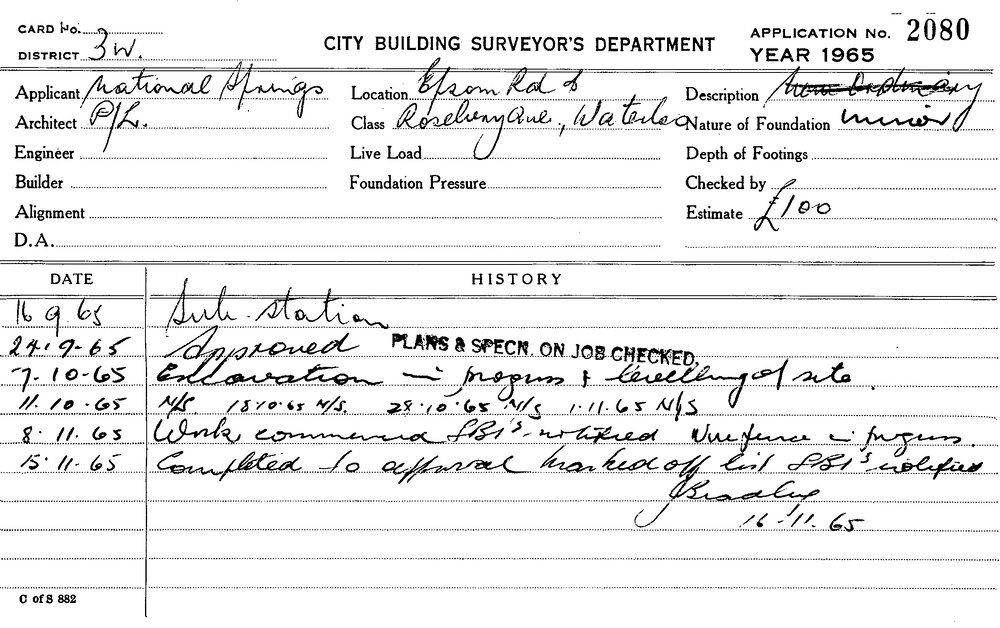 CARD No.
DISTRICT 3W.
CITY BUILDING SURVEYOR'S DEPARTMENT
APPLICATION No. 2080
YEAR 1965
Applicant National Springs
Location Epsom Rd &
Description
Architect P/L.
Class Rosebery Ave., Waterloo
Nature of Foundation minor
Engineer
Live Load
Depth of Footings
Builder
Foundation Pressure
Checked by
Alignment
Estimate £100
D.A.
DATE HISTORY
16 9 65 Sub-station
24.9-65 Approved PLANS & SPECN. ON JOB CHECKED.
7-10-65 Excavation in progress & levelling of site.
11.10.65 N/S. 18.10.65 N/S. 28.10.65 N/S 1.11.65 N/S
8.11.65 Work commenced LBI's notified Wire fence in progress.
15.11.65 Completed to approval marked off list LBI's notified
16.11.65
C of S 882